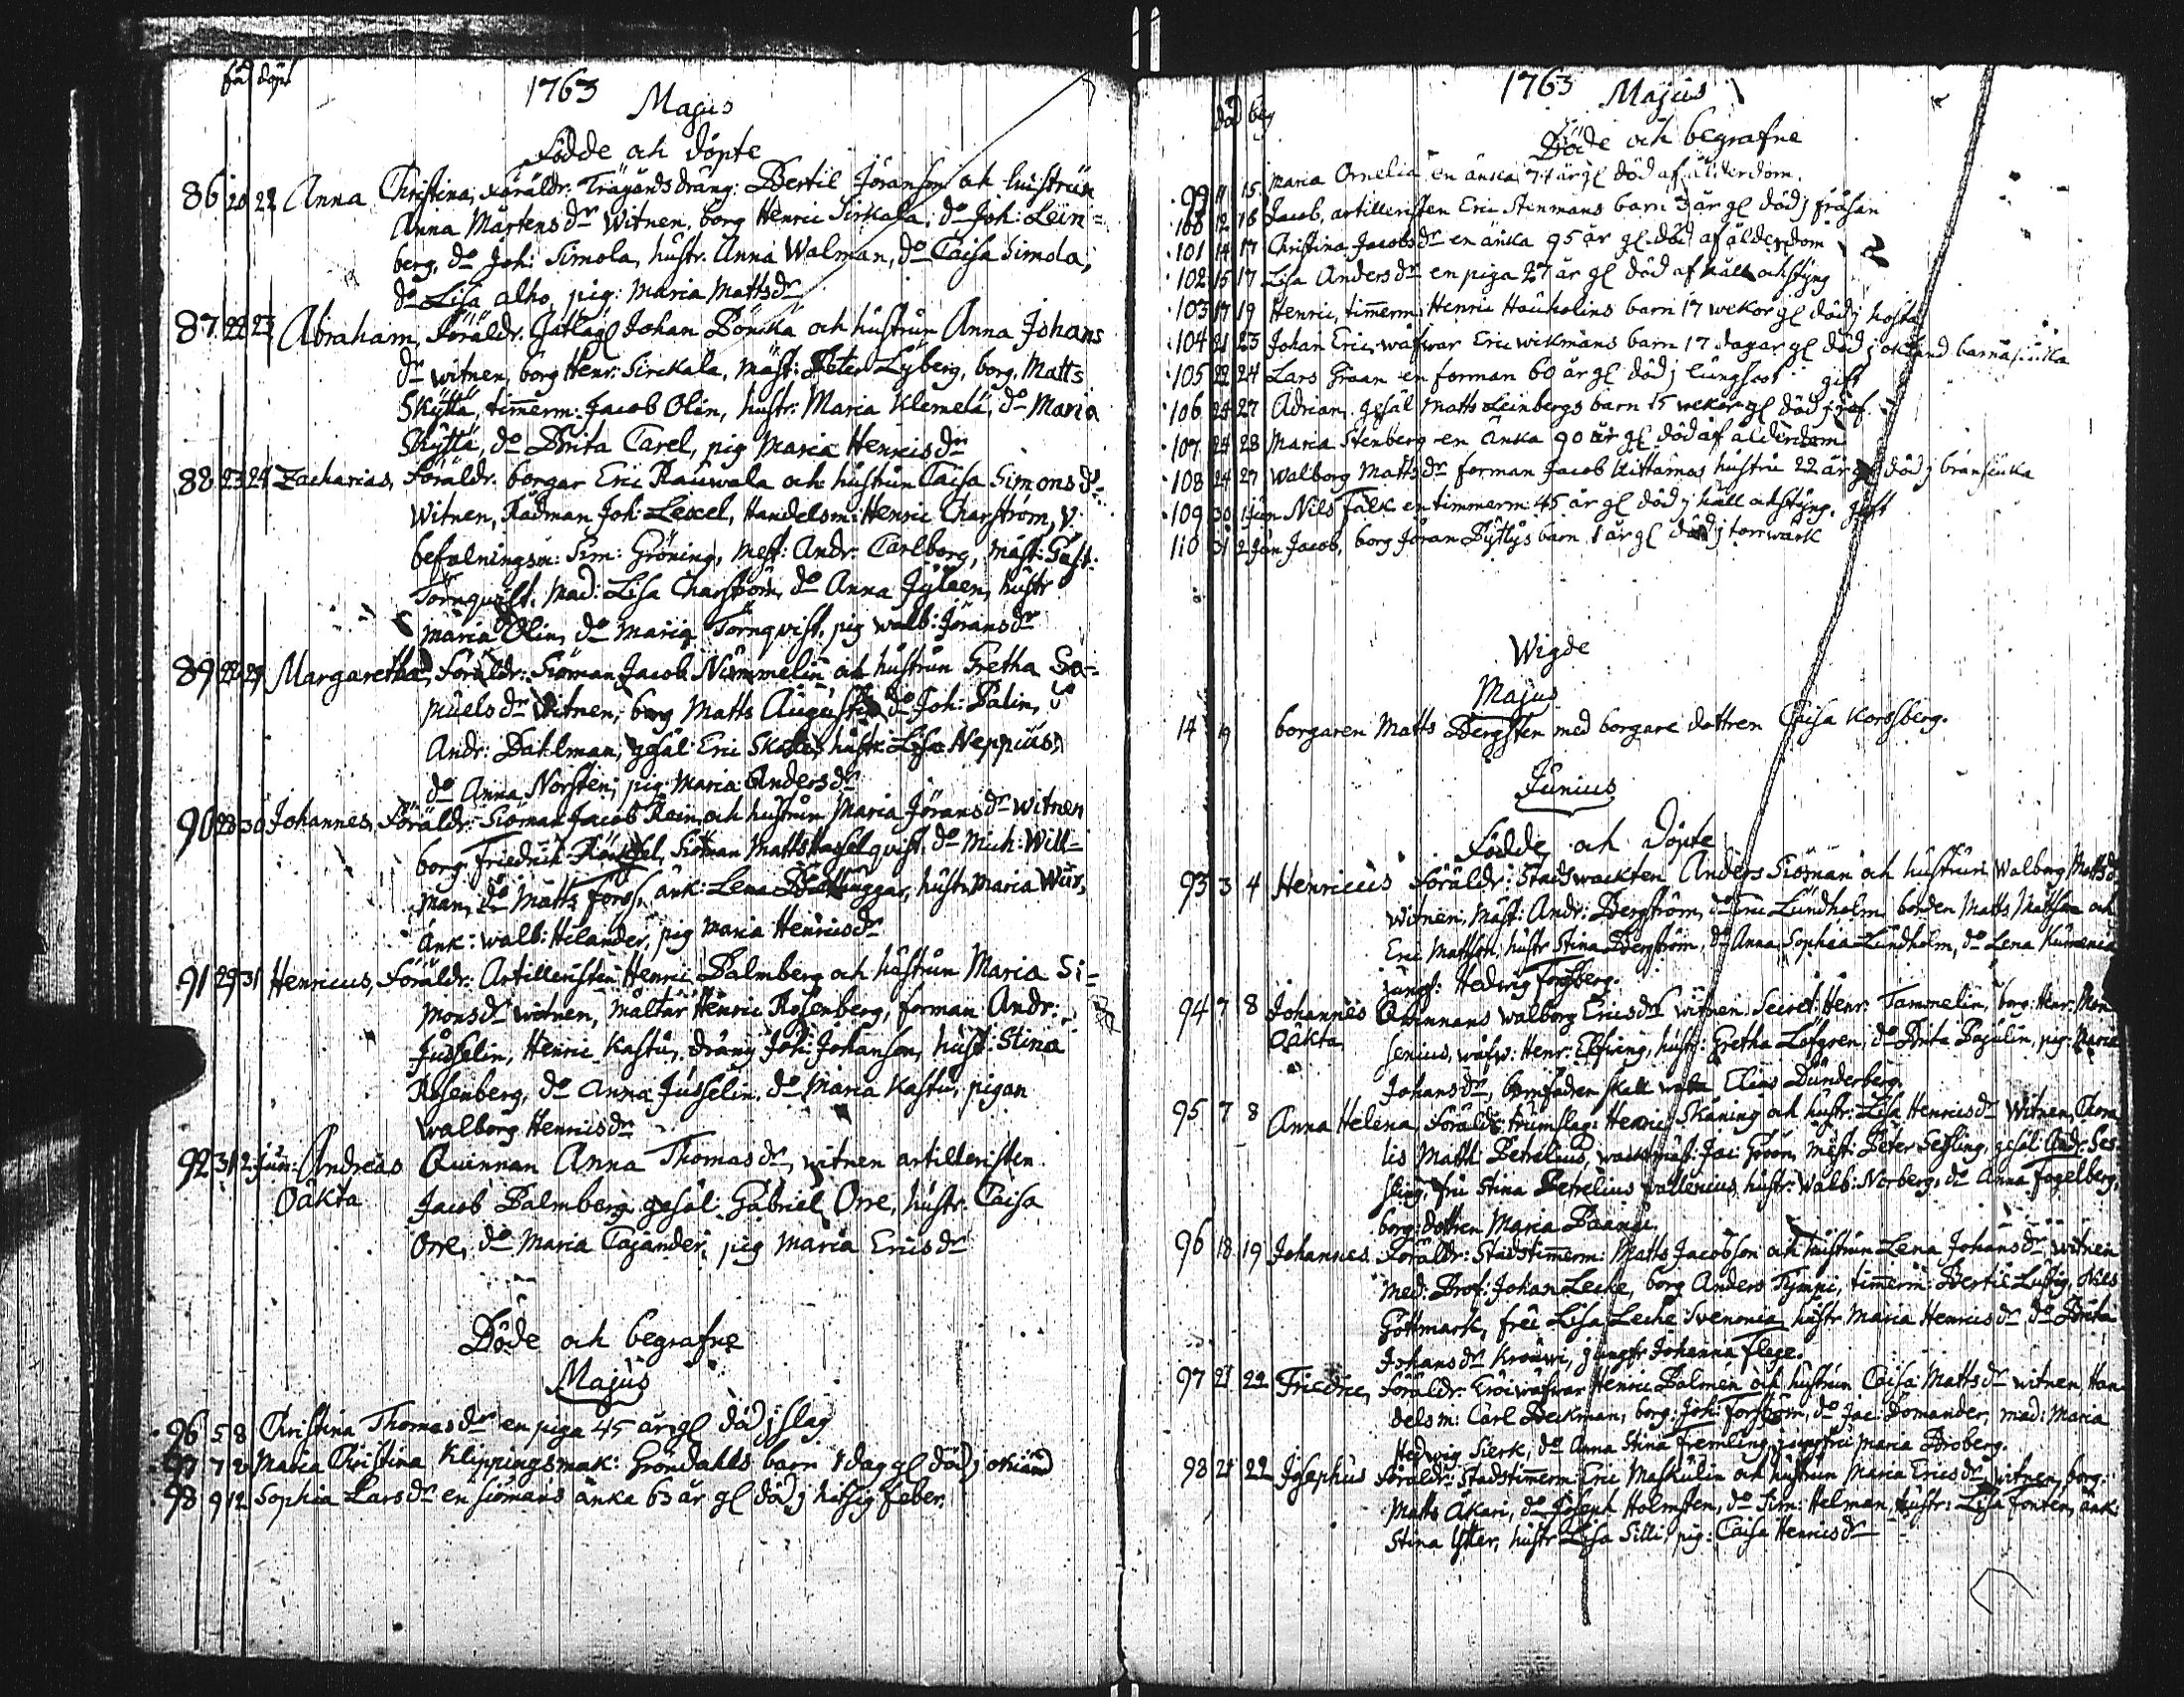 föd döpt
1763
Majus
Födde och döpte
86 20 22 Anna Christina, föräldr: Trägårdsdräng: Bertil Jöranson och hustrun
Anna Mårtens dr Witnen, borg Henric Sirkala, do Joh: Lein=
berg, do Joh: Simola, hustr: Anna Walman, do Caisa Simola,
do Lisa alho, pig: Maria Matts dr
87 22 23 Abraham, Föräldr. Johan Böncka och hustrun Anna Johans
dr witnen, borg Henr: Sirckala, mäst: Peter Lyberg, borg. Matts
Skÿttä, tim̅erm: Jacob Olin, hustr: Maria Klemelä, do Maria
Skÿttä, do Brita Carel, pig Maria Henrics dr
88 23 24 Zacharias, Föräldr. borgar Eric Rauwala och hustrun Caisa Simons dr
Witnen, Rådman Joh: Lexel, Handelsm: Henric Charström, v.
befalningsm: Sim: Gröning, mest: Andr: Carlborg, mäst: Gust:
Törnqvist, Mad: Lisa Charström, do Anna Jÿlaen, hustr
maria Olin, do maria Törnqvist, pig walb: Jörans dr
89 29 Margaretha, Föräldr: Siöman Jacob Nummelin och hustrun Gretha Sa=
muels dr Witnen, borg Matts Augustin do Joh: Palin,
Andr: Dahlman, gesäl: Eric hustr: Lisa Neppius,
do Anna Norsten, pig Maria Anders dr
90 28 30 Johannes, Föräldr. Siöman Jacob Rein och hustrun Maria Jörans dr Witnen
borg Friedrich Siöman Matts Hasselqvist, do Mich: Will=
man, do Matts Forss, änk: Lena hustr Maria
Ank: walb: Hilander, pig Maria Henrics dr
91 29 31 Henricus, Föräldr: Artilleristen Henric Palmberg och hustrun Maria Si=
mons dr witnen, mältar Henric Rosenberg, forman Andr:
Jusselin, Henric Kastu, dräng Joh: Johanson, hust: Stina
Rosenberg, do Anna Jusselin, do Maria Kastu, pigan
Walborg Henrics dr
92 31 2 Jun: Andreas Quinnan Anna Thomas dr, witnen artilleristen
Oäkta Jacob Palmberg gesäl Gabriel Orre, hustr. Caisa
Orre, do Maria Cajander, pig Maria Erics dr
Döde och begrafne
Majus
96 5 8 Christina Thomas dr en piga 45 år gl död j slag
97 7 Maria Christina Klippingsmak: Gröndahls barn 1 dag gl död j okänd
98 9 12 Sophia Lars dr en siömans änka 63 år gl död j hitsig feber
1763 Majus
död beg
Döde och begrafne
99 11 15 Maria Ornelia en änka 74 år gl död af ålderdom.
100 12 16 Jacob, artilleristen Eric Stenmans barn 3 år gl död j fråsan
101 14 17 Christina Jacobs dr en änka 95 år gl död af ålderdom
102 15 17 Lisa Anders dr en piga 27 år gl död af håll och styng
103 17 19 Henric, tim̅erm: Henric Hauholins barn 17 wekor gl död j hosta
104 21 23 Johan Eric, wäfwar Eric wikmans barn 17 dagar gl död j okänd barnasiuka
105 22 24 Lars Graan en forman 60 år gl död j lungsot gift
106 24 27 Adrian, gesäl Matts Leinbergs barn 15 wekor gl död j
107 24 28 Maria Stenberg en änka 90 år gl död af ålderdom
108 24 27 Walborg Matts dr forman Jacob Kittamas hustru 22 år gl död j bränsiuka
109 30 1 jun Nils Falk en timmerm 45 år gl död j håll och styng. gift
110 31 2 Jun Jacob, borg Jöran Pÿttÿs barn 1 år gl död j torrwärk
Wigde
Majus
14 19 borgaren Matts Bergsten med borgare dottren Caisa Korsberg.
Junius
Födde och döpte
93 3 4 Henricus Föräldr: Stadswackten Anders Siöman och hustrun Walborg Matts dr
Witnen, mäst: Andr: Bergström, do Eric Lundholm, Matts Mattson och
Eric Mattson, hustr Stina Bergström, do Anna Sophia Lundholm, do Lena
jungf: Hedwig Forsberg.
94 7 8 Johannes Quinnans walborg Erics dr witnen: Secret: Henr: Tammelin, borg: Henr:
Oäkta senius, wäfw: Henr: Elfving, hustr: Gretha Löfgren, do Brita Pajulin, pig: Maria
Johans dr, barnfaden skall wara Elias Dunderberg.
95 7 8 Anna Helena, Föräldr: trumslag: Henric Skäning och hustr: Lisa Henrics dr Witnen, Chora
lis Matth Petrelius, wacktmäst: Jac: Gröön, mest: Peter Sesling, gesäl Andr: Ses
sling, fru Stina Petrelius Wallenius, hustr: Walb: Norberg, do Anna Fogelberg,
borg: dottren Maria
96 18 19 Johannes Föräldr: Stadstim̅erm: Matts Jacobson och hustrun Lena Johans dr witnen
med: Prof: Johan Leche, borg Anders Tÿmmi, tim̅erm Bertil Lustig, Nils
Gottmark, fru Lisa Leche Svenonia, hustr Maria Henrics dr do Brita
Johans dr jungfr Johanna Flege.
97 21 22 Friedric, Föräldr: wäfwar Henric Palmén och hustrun Caisa Matts dr witnen, Han
delsm: Carl Beckman, borg: Joh: Forström, do Jac: Domander, mad: Maria
Hedwig Sierk, do Anna Stina Fremling, jungfru Maria Broberg.
98 21 22 Josephus Föräldr: Stadstim̅erm: Eric Maskulin och hustrun Maria Erics dr witnen, borg:
Matts Äkäri, do Joseph Holmsten, do Sim: Helman, hustr: Lisa Fonten, änk:
Stina hustr Lisa Silli, pig: Caisa Henrics dr